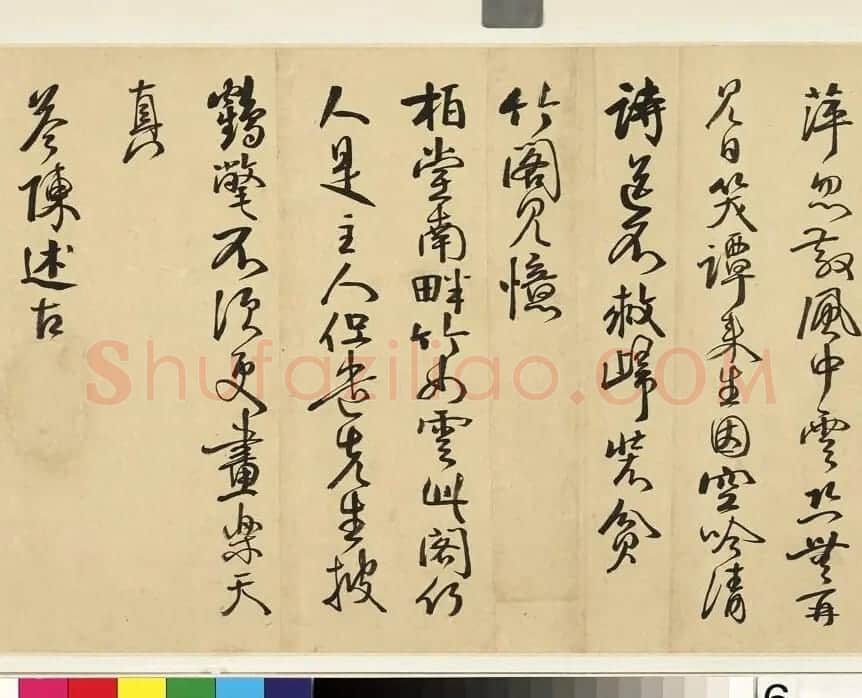 萍忽散風中雲恐無再
見日笑譚来生因空吟清
詩送不救歸裝貧
竹閣見憶
柏堂南畔竹如雲此閣何
人是主人但遣先生披
鶴氅不須更畫樂天
真
答陳述古
Shufaziliao.COM